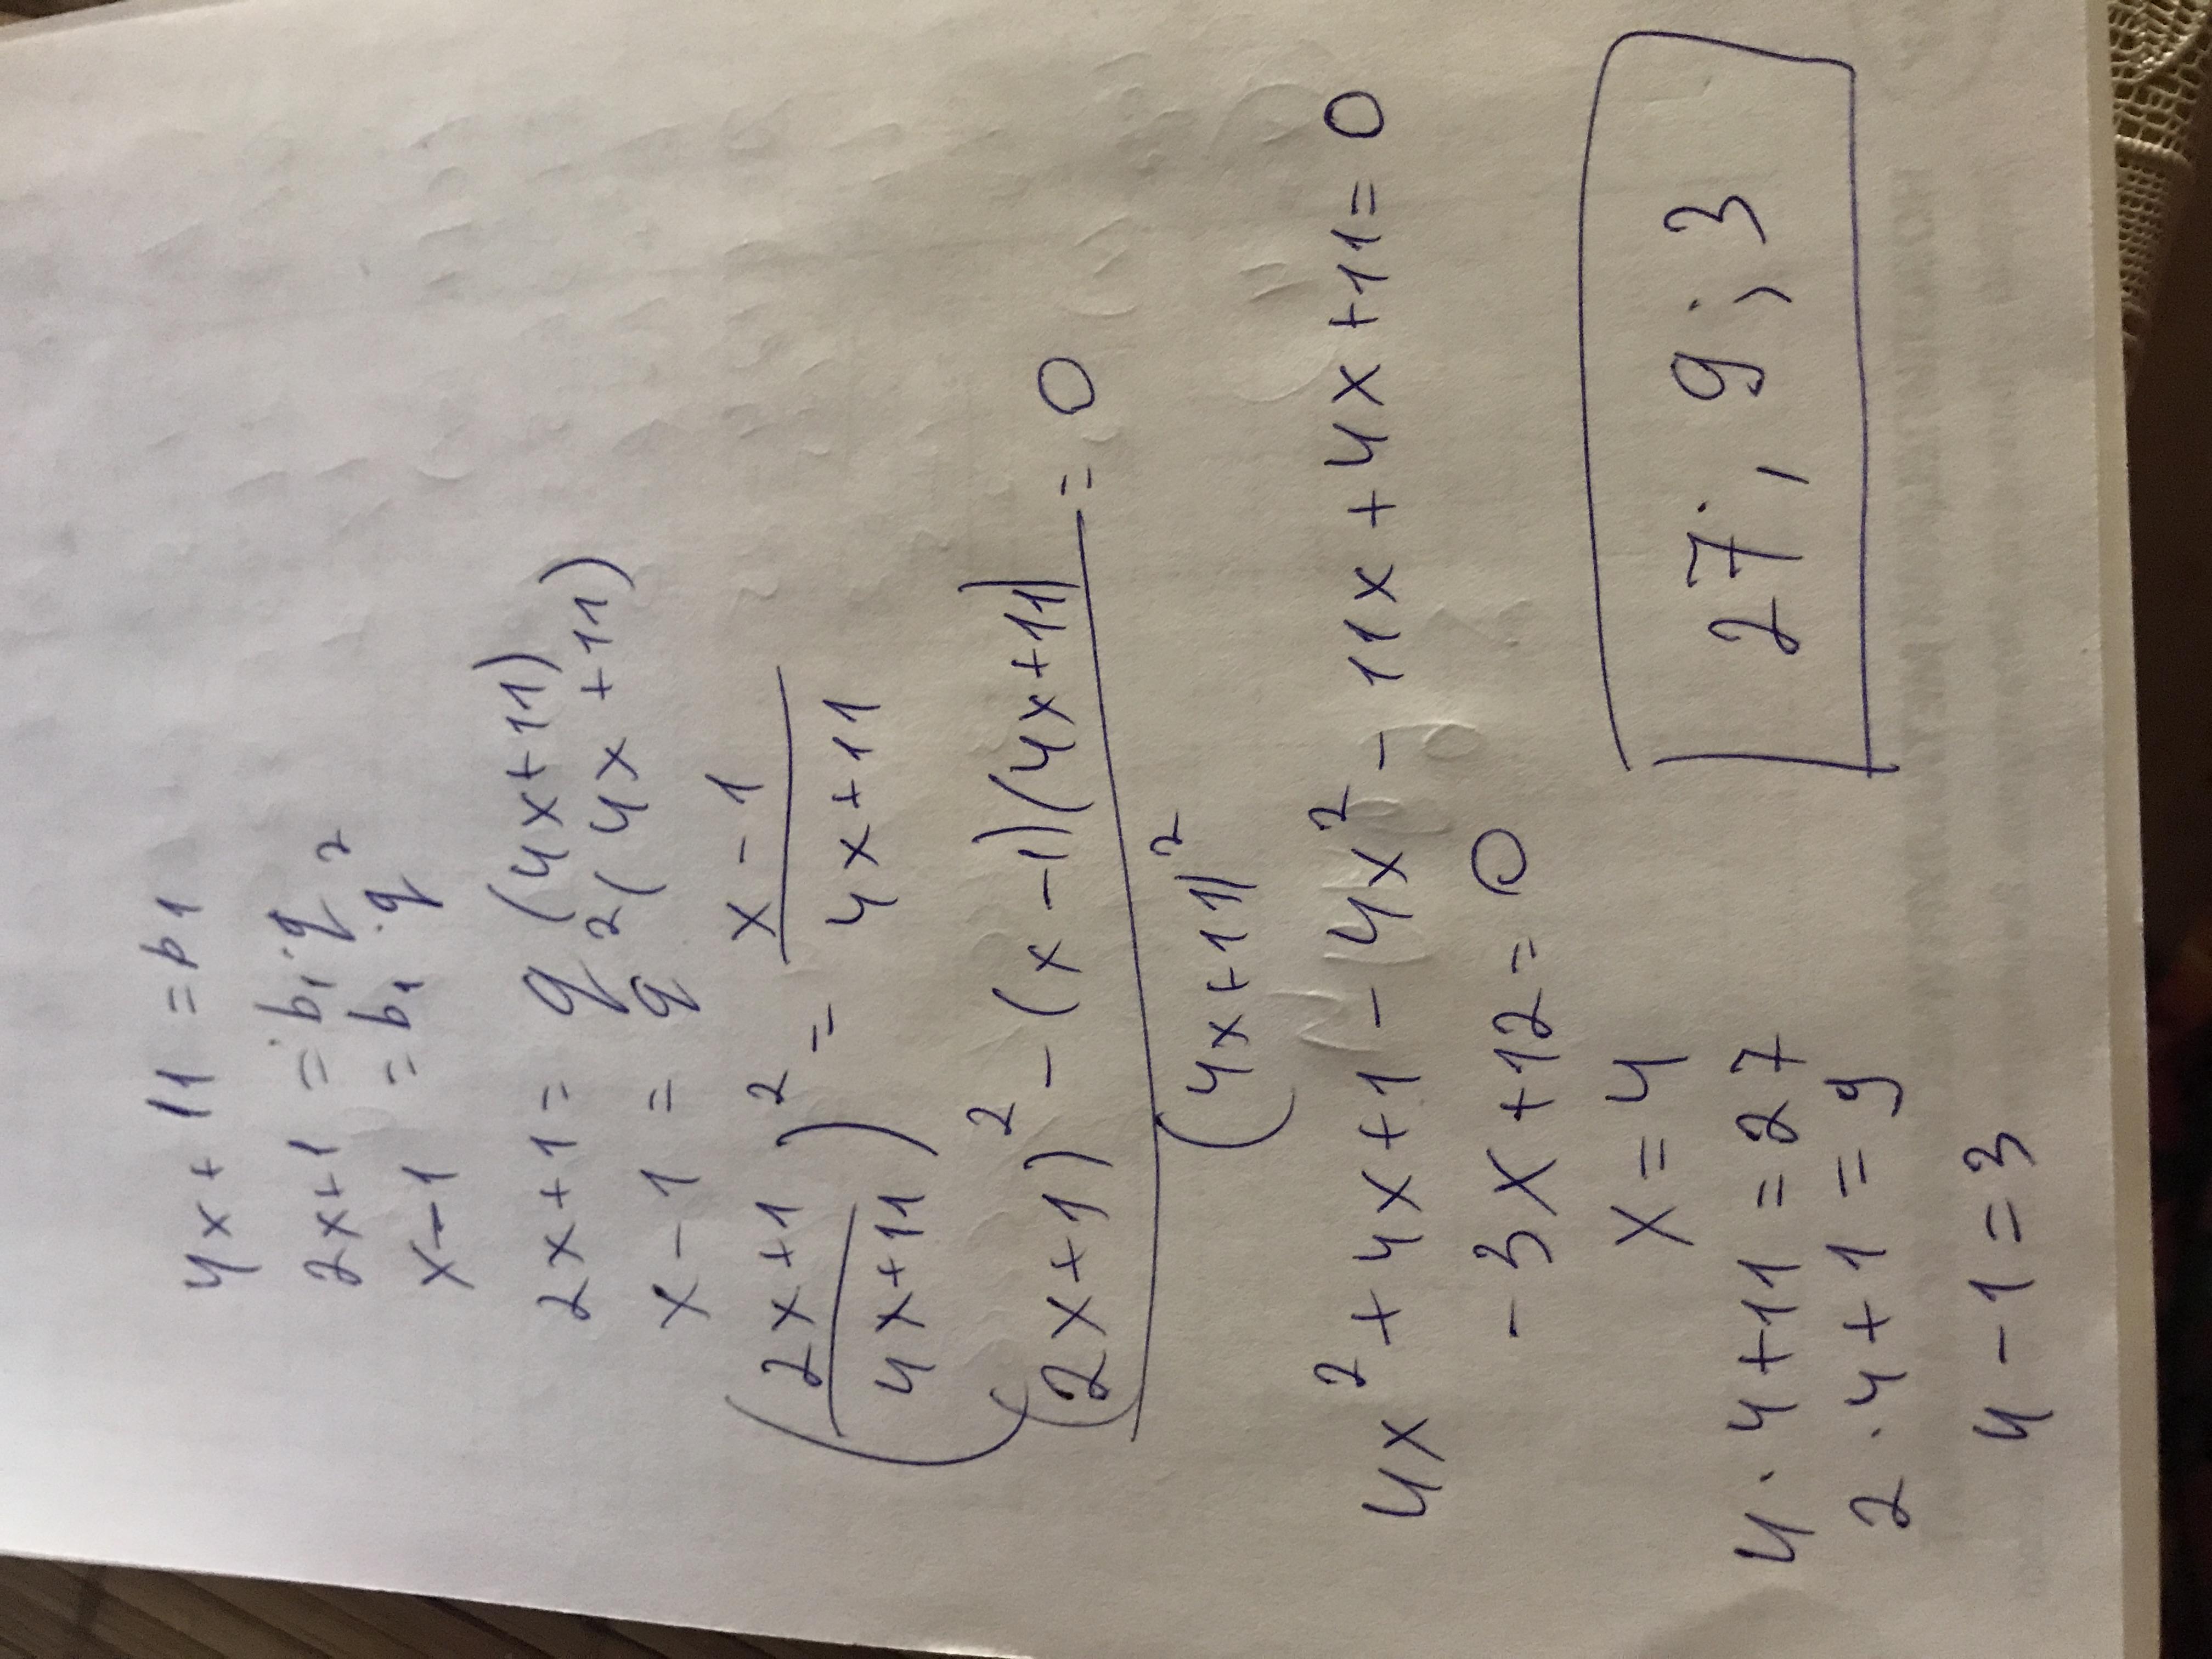 4x + 11 = b₁
2x+1 = b₁·q
x-1 = b₁·q²
2x+1 = q(4x+11)
x-1 = q²(4x+11)
(2x+1/4x+11)² = x-1/4x+11
(2x+1)² - (x-1)(4x+11)/(4x+11)² = 0
4x² + 4x+1 - 4x² - 11x + 4x + 11 = 0
-3x+12=0
x=4
4·4+11=27
2·4+1=9
4-1=3
27; 9; 3